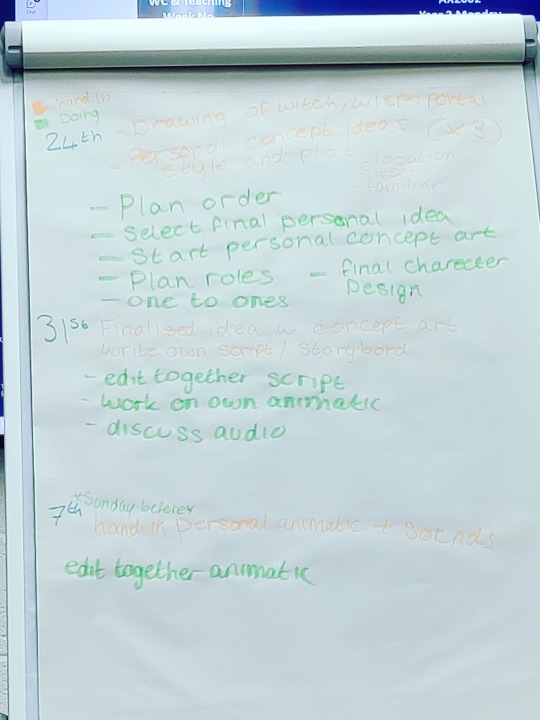 WC & Teaching
Week No
Year 2 Monday
hand in
Doing
24th - Drawing of witch, wisp, portal
- Personal concept ideas (x3)
style and plot - location
- item
- familiar
- Plan order
- Select final personal idea
- Start personal concept art
- Plan roles - final charecter
Design
- one to ones
31st Finalised idea w concept art
write own script/ storybord
- edit together script
- work on own animatic
- discuss audio
*Sunday before*
7th hand in personal animatic + sounds
edit together animatic